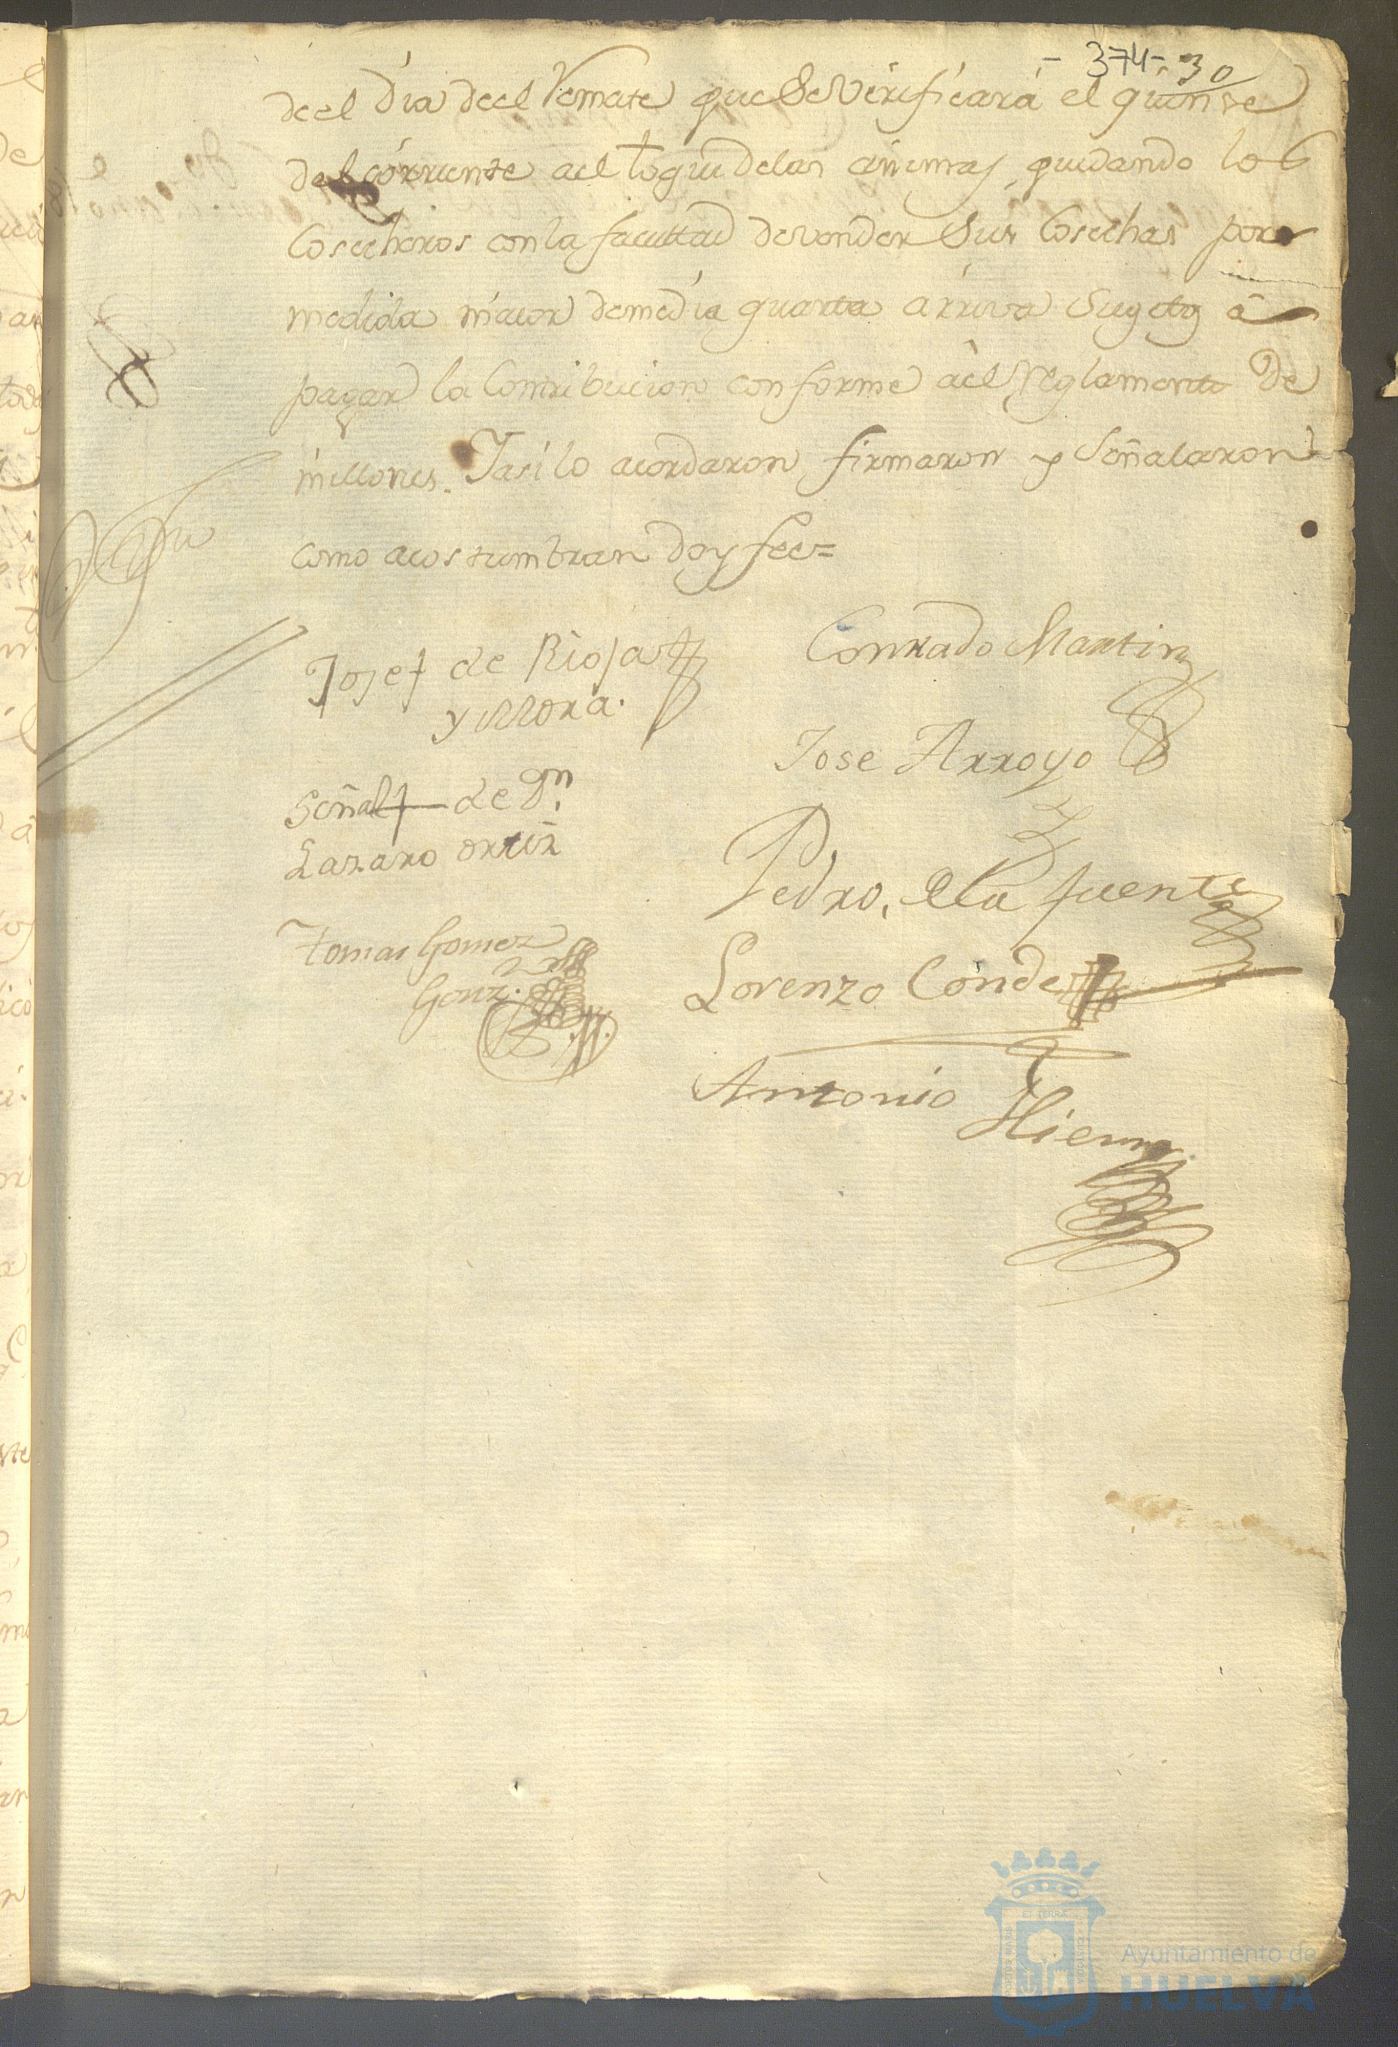 - 374 - 30
de el Dia de el Remate que Se Verificará el quinse
del corriente ael toque delas animas, quedando los
Cosecheros con la facultad de vender Sus Cosechas por
medida maior de media quarta arriva Sugetos â
pagar la Contribucion conforme àel reglamento de
millones. Iasi lo acordaron firmaron y Señalaron
como acostumbran doy fee=
Josef de Rioja
y Mora.
Conrado Martin
Jose Arroyo
Señal + de Dn.
Lazaro ortiz
Pedro, de la fuente
Tomas Gomez
Gonz.
Lorenzo Conde
Antonio
Ayuntamiento de
HUELVA